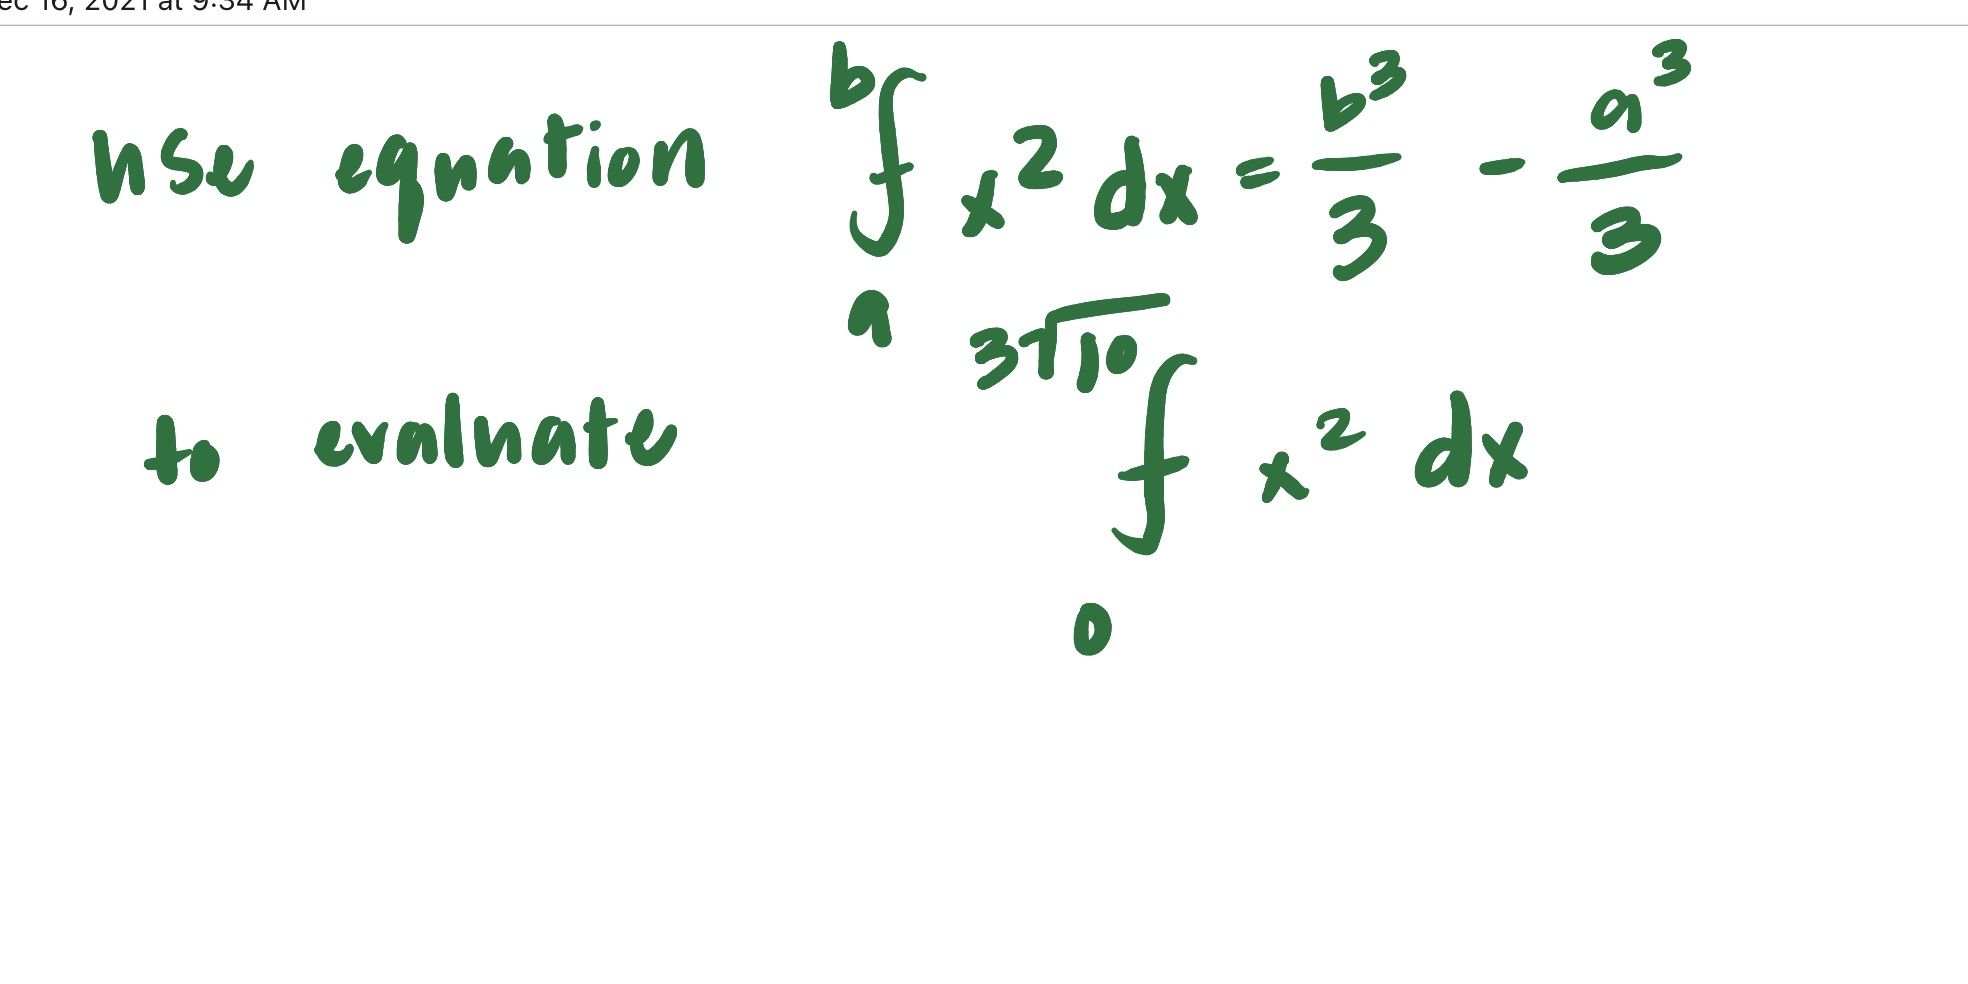 ec 16, 2021 at 9:34 AM
use equation ∫_a^b x² dx = b³/3 - a³/3
to evaluate ∫_0^{3√10} x² dx